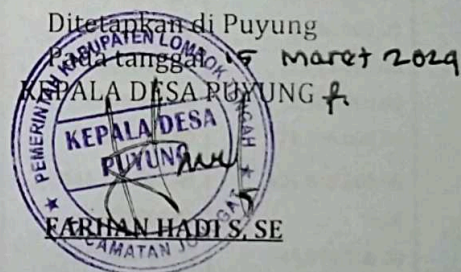 Ditetapkan di Puyung
Pada tanggal 15 maret 2029
KEPALA DESA PUYUNG
PEMERINTAH KABUPATEN LOMBOK TENGAH
KEPALA DESA
PUYUNG
FARHAN HADI S, SE
KECAMATAN JONGGAT